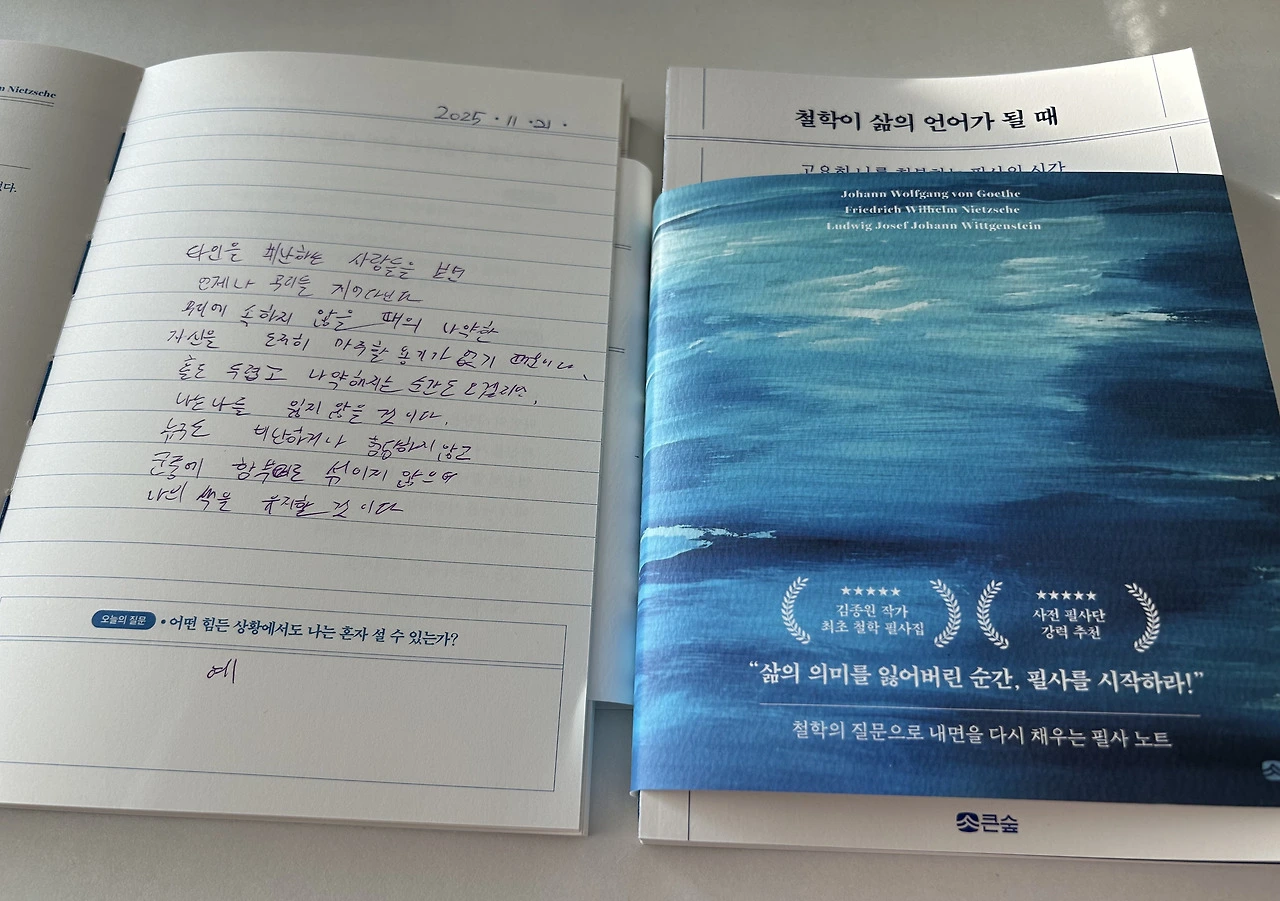 Nietzsche
다.
2025. 11. 21.
타인을 비난하는 사람들을 보면
언제나 무리를 지어다닌다
무리에 속하지 않을 때의 나약한
자신을 도저히 마주할 용기가 없기 때문이다.
홀로 두렵고 나약해지는 순간도 오겠지만,
나는 나를 잃지 않을 것이다.
누구도 비난하거나 험담하지 않고
군중에 함부로 섞이지 않으며
나의 색을 유지할 것이다
오늘의 질문
• 어떤 힘든 상황에서도 나는 혼자 설 수 있는가?
예
철학이 삶의 언어가 될 때
Johann Wolfgang von Goethe
Friedrich Wilhelm Nietzsche
Ludwig Josef Johann Wittgenstein
★★★★★
김종원 작가
최초 철학 필사집
★★★★★
사전 필사단
강력 추천
“삶의 의미를 잃어버린 순간, 필사를 시작하라!”
철학의 질문으로 내면을 다시 채우는 필사 노트
큰숲